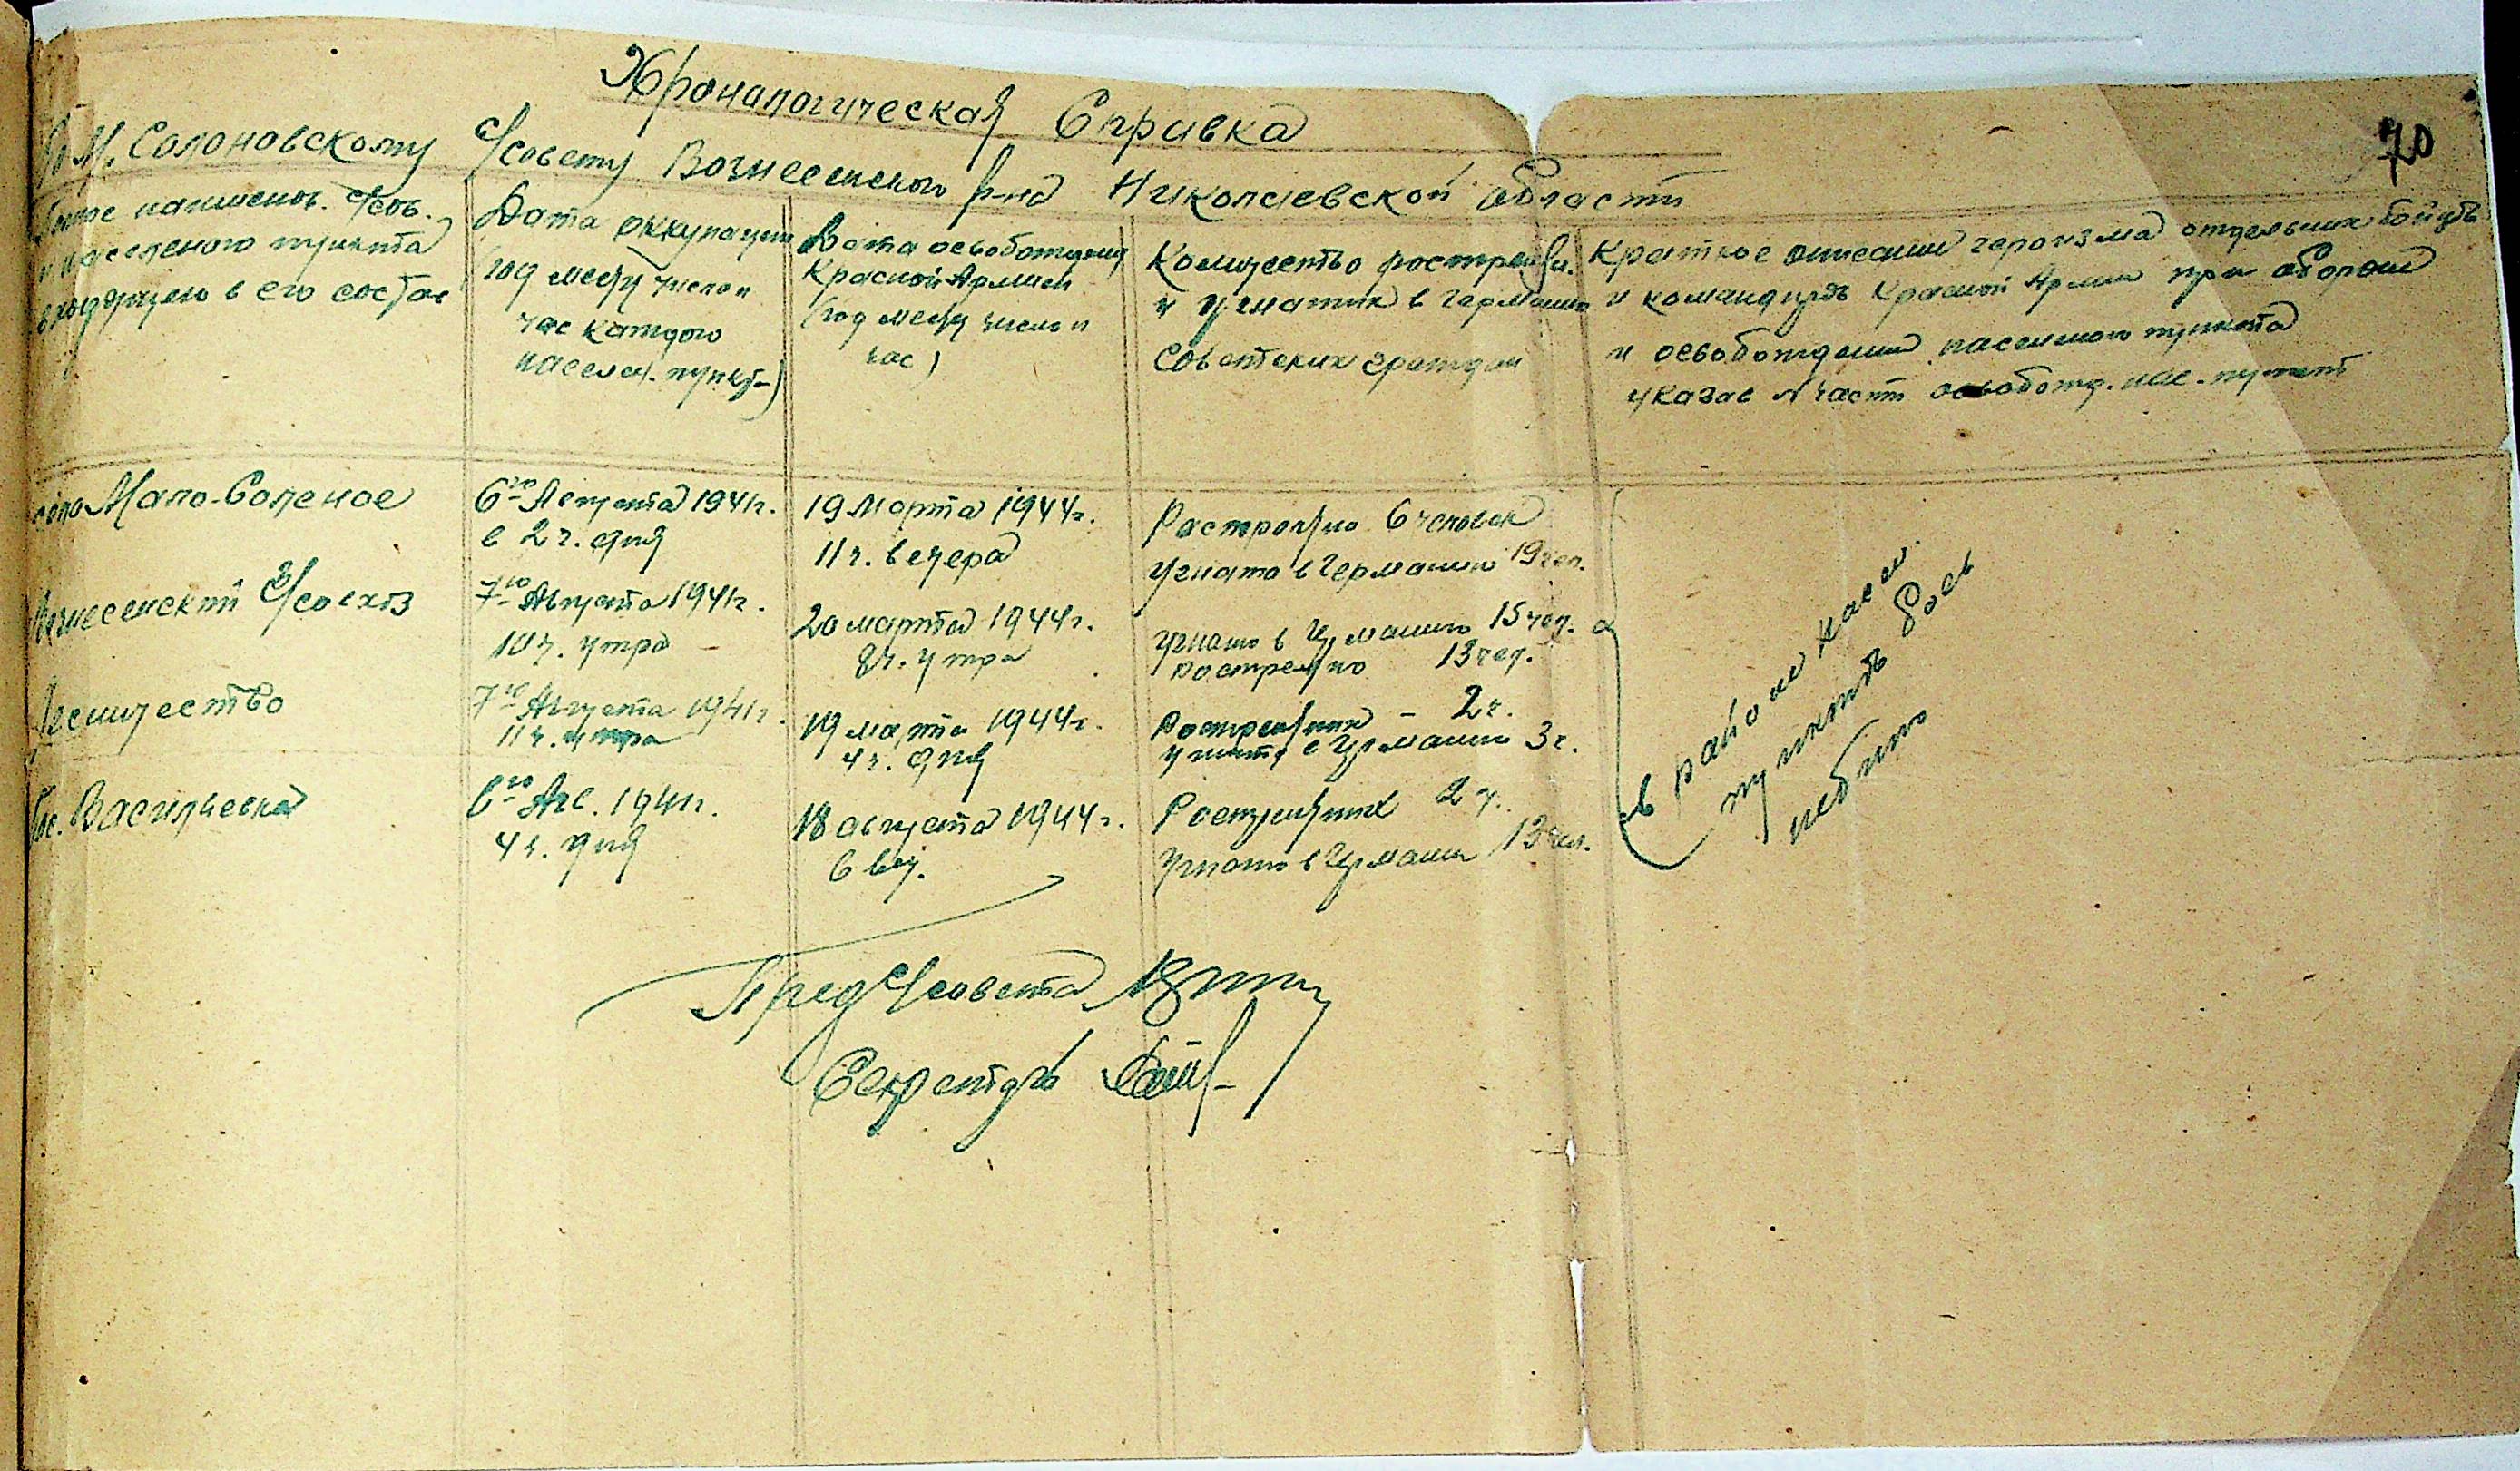 70
Хронологическая Справка
По М. Солоновскому с/совету Вознесенского р-на Николаевской области
наименов. с/сов.
и населеного пункта
входящего в его состав
Дата оккупации
(год месяц число и
час каждого
населен. пункта)
Дата освобождения
Красной Армией
(год месяц число и
час)
Количество расстрелян.
и угнатых в германию
Советских граждан
Краткое описание героизма отдельных бойцов
и командиров Красной Армии при обороне
и освобождении населеного пункта
указав № части освобожд. нас. пункт
село Мало-Соленое
6го Августа 1941г.
в 2 ч. дня
19 Марта 1944г.
11 ч. вечера
Растреляно 6 человек
Угнато в Германию 19 чел.
Вознесенский с/совхоз
7го Августа 1941г.
10 ч. утра
20 марта 1944г.
8 ч. утра
Угнато в Германию 15 чел.
растреляно 13 чел.
Лесничество
7го Августа 1941г.
11 ч. утра
19 марта 1944г.
4 ч. дня
Растреляных - 2 ч.
угнато в Германию 3 ч.
Пос. Васильевка
6го Авг. 1941г.
4 ч. дня
18 августа 1944г.
6 веч.
Растреляных 2 ч.
Угнато в Германию 13 чел.
в районе насел.
пунктов боев
небыло
Пред с/совета
Секретарь